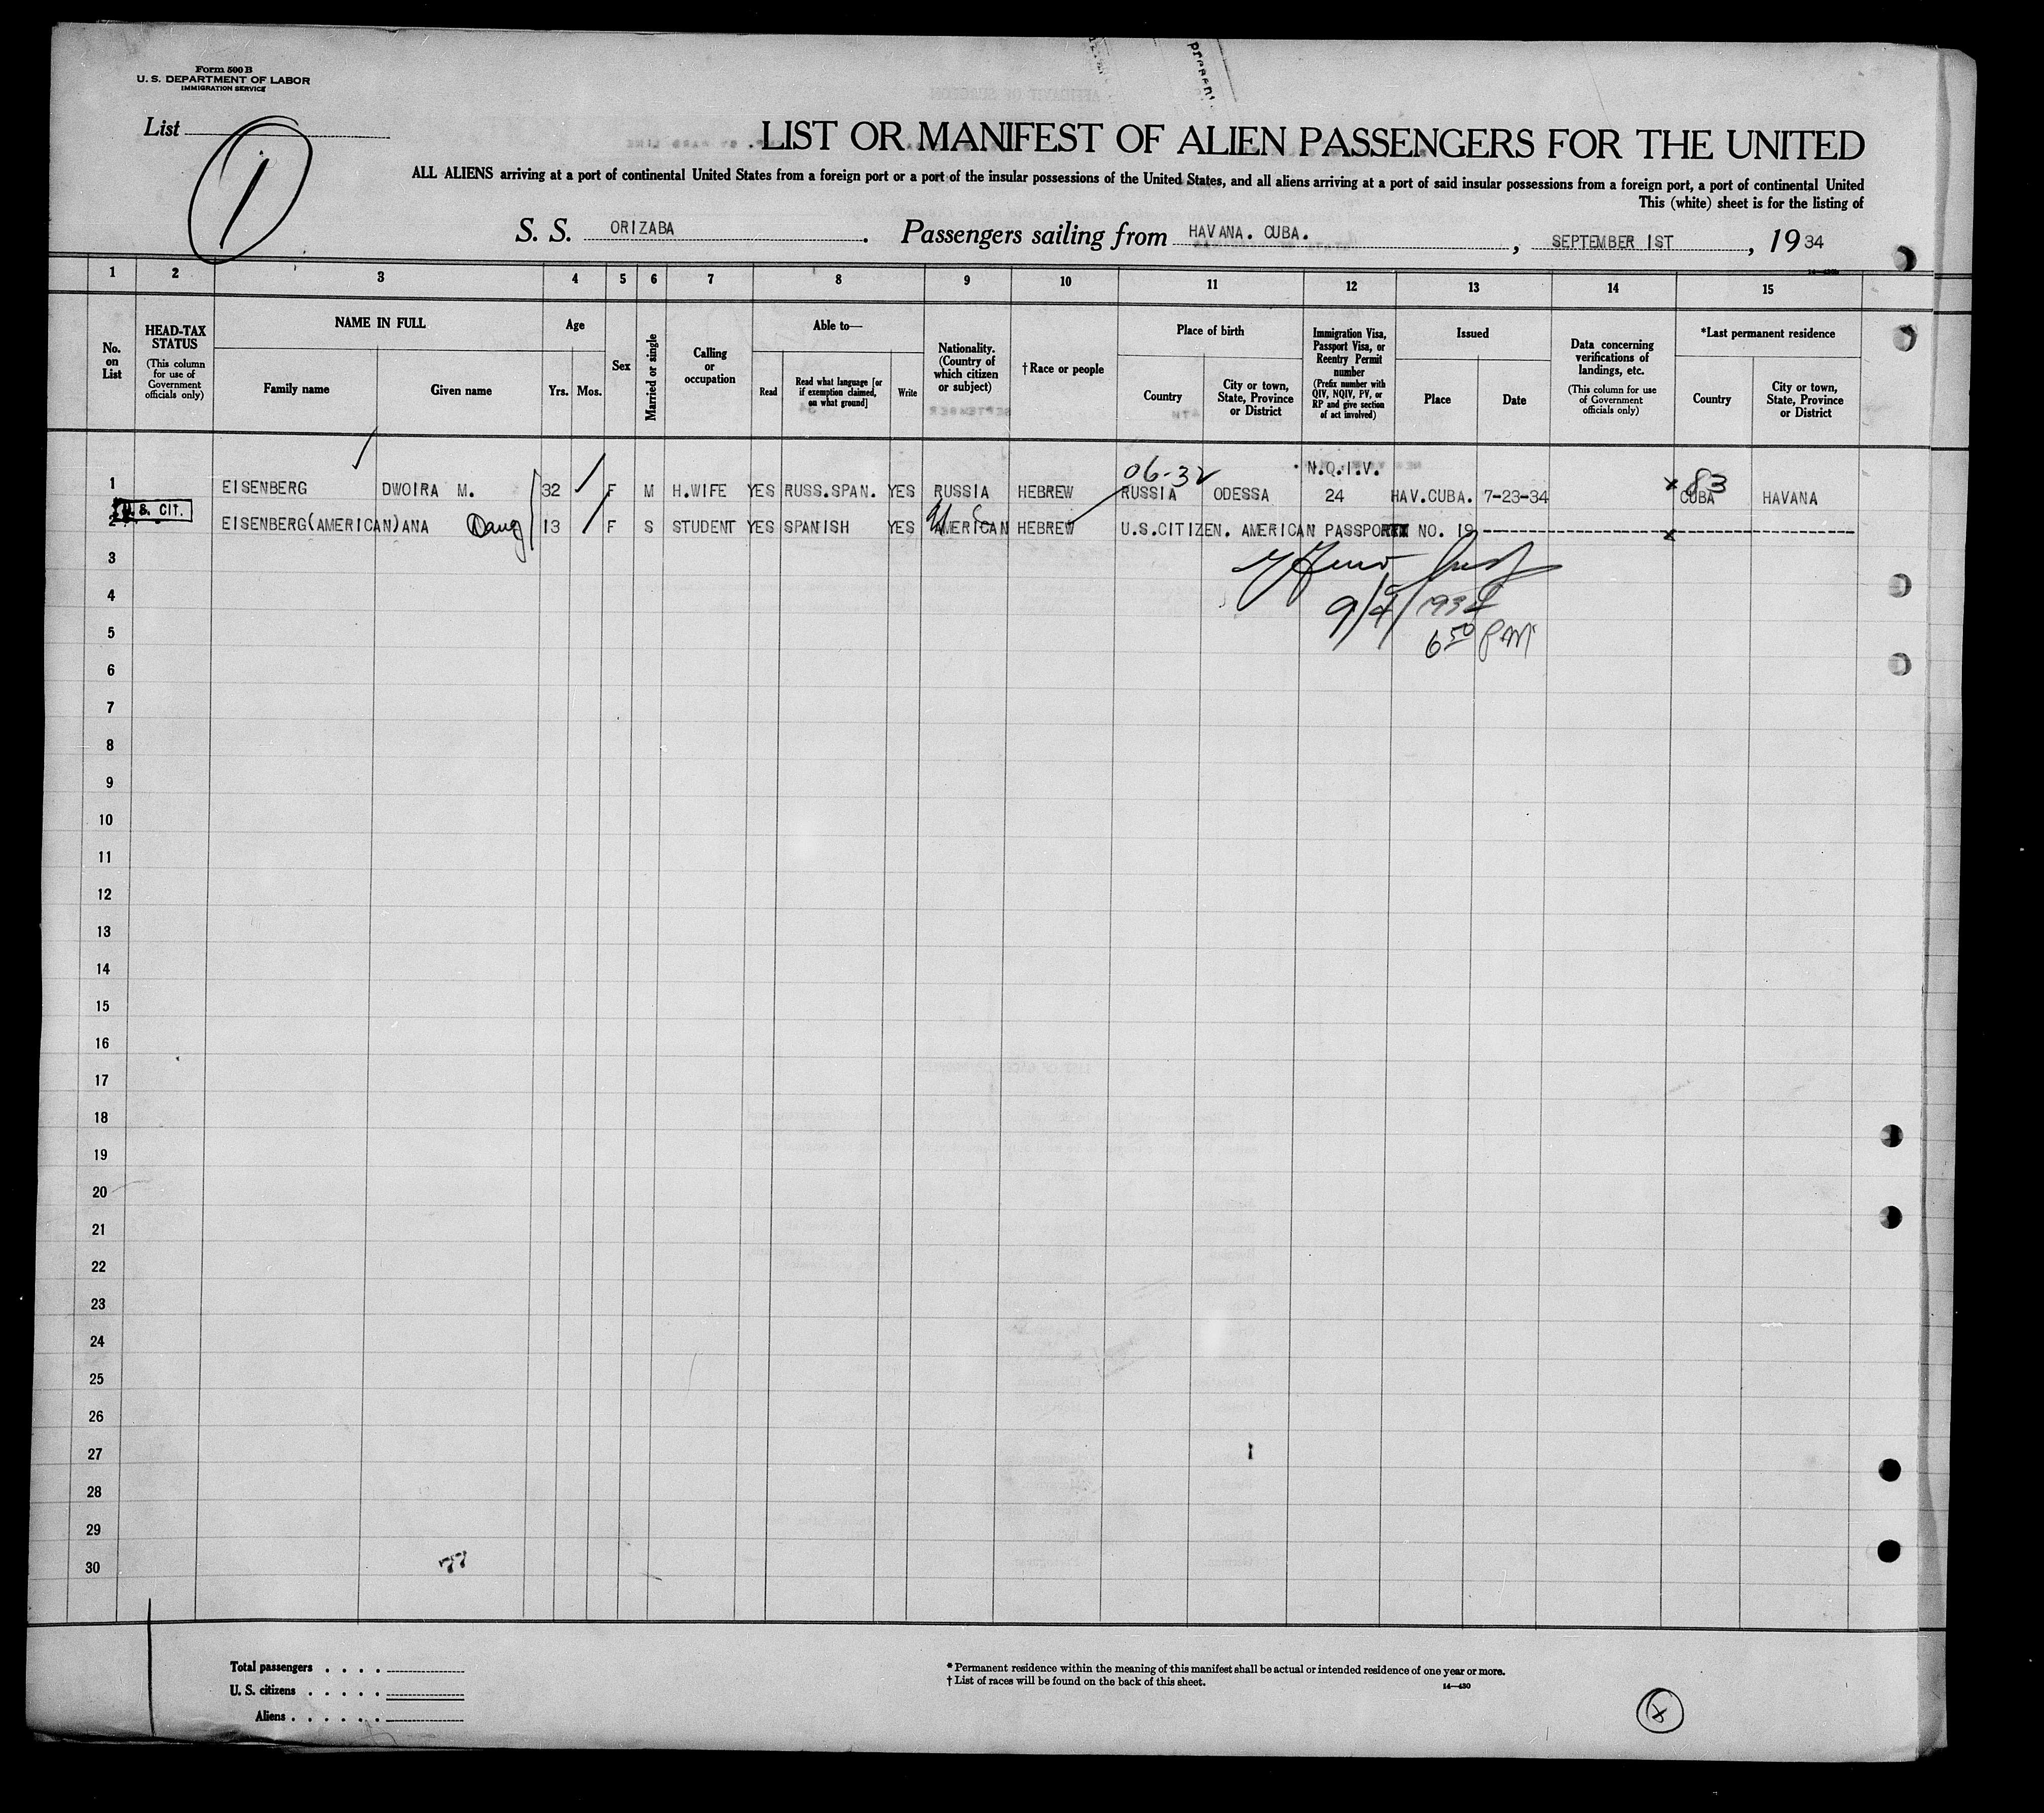 Form 500 B
U. S. DEPARTMENT OF LABOR
IMMIGRATION SERVICE
List
1
LIST OR MANIFEST OF ALIEN PASSENGERS FOR THE UNITED
ALL ALIENS arriving at a port of continental United States from a foreign port or a port of the insular possessions of the United States, and all aliens arriving at a port of said insular possessions from a foreign port, a port of continental United
This (white) sheet is for the listing of
S. S. ORIZABA. Passengers sailing from HAVANA. CUBA. , SEPTEMBER 1ST , 1934
1 2 3 4 5 6 7 8 9 10 11 12 13 14 15
No. on List
HEAD-TAX STATUS (This column for use of Government officials only)
NAME IN FULL
Family name
Given name
Age
Yrs. Mos.
Sex
Married or single
Calling or occupation
Able to—
Read
Read what language [or if exemption claimed, on what ground]
Write
Nationality. (Country of which citizen or subject)
† Race or people
Place of birth
Country
City or town, State, Province or District
Immigration Visa, Passport Visa, or Reentry Permit number (Prefix number with QIV, NQIV, PV, or RP and give section of act involved)
Issued
Place
Date
Data concerning verifications of landings, etc. (This column for use of Government officials only)
*Last permanent residence
Country
City or town, State, Province or District
06-32 N.Q.I.V. x 83
1 EISENBERG DWOIRA M. 32 F M H.WIFE YES RUSS.SPAN. YES RUSSIA HEBREW RUSSIA ODESSA 24 HAV.CUBA. 7-23-34 CUBA HAVANA
U.S. CIT.
2 EISENBERG(AMERICAN)ANA Daug 13 F S STUDENT YES SPANISH YES AMERICAN HEBREW U.S.CITIZEN. AMERICAN PASSPORT NO. 19 x
3
9/4/1934
4
6 50 PM
5
6
7
8
9
10
11
12
13
14
15
16
17
18
19
20
21
22
23
24
25
26
27
28
29
30
77
Total passengers . . . .
U. S. citizens . . . . .
Aliens . . . . . .
* Permanent residence within the meaning of this manifest shall be actual or intended residence of one year or more.
† List of races will be found on the back of this sheet.
14—430
x